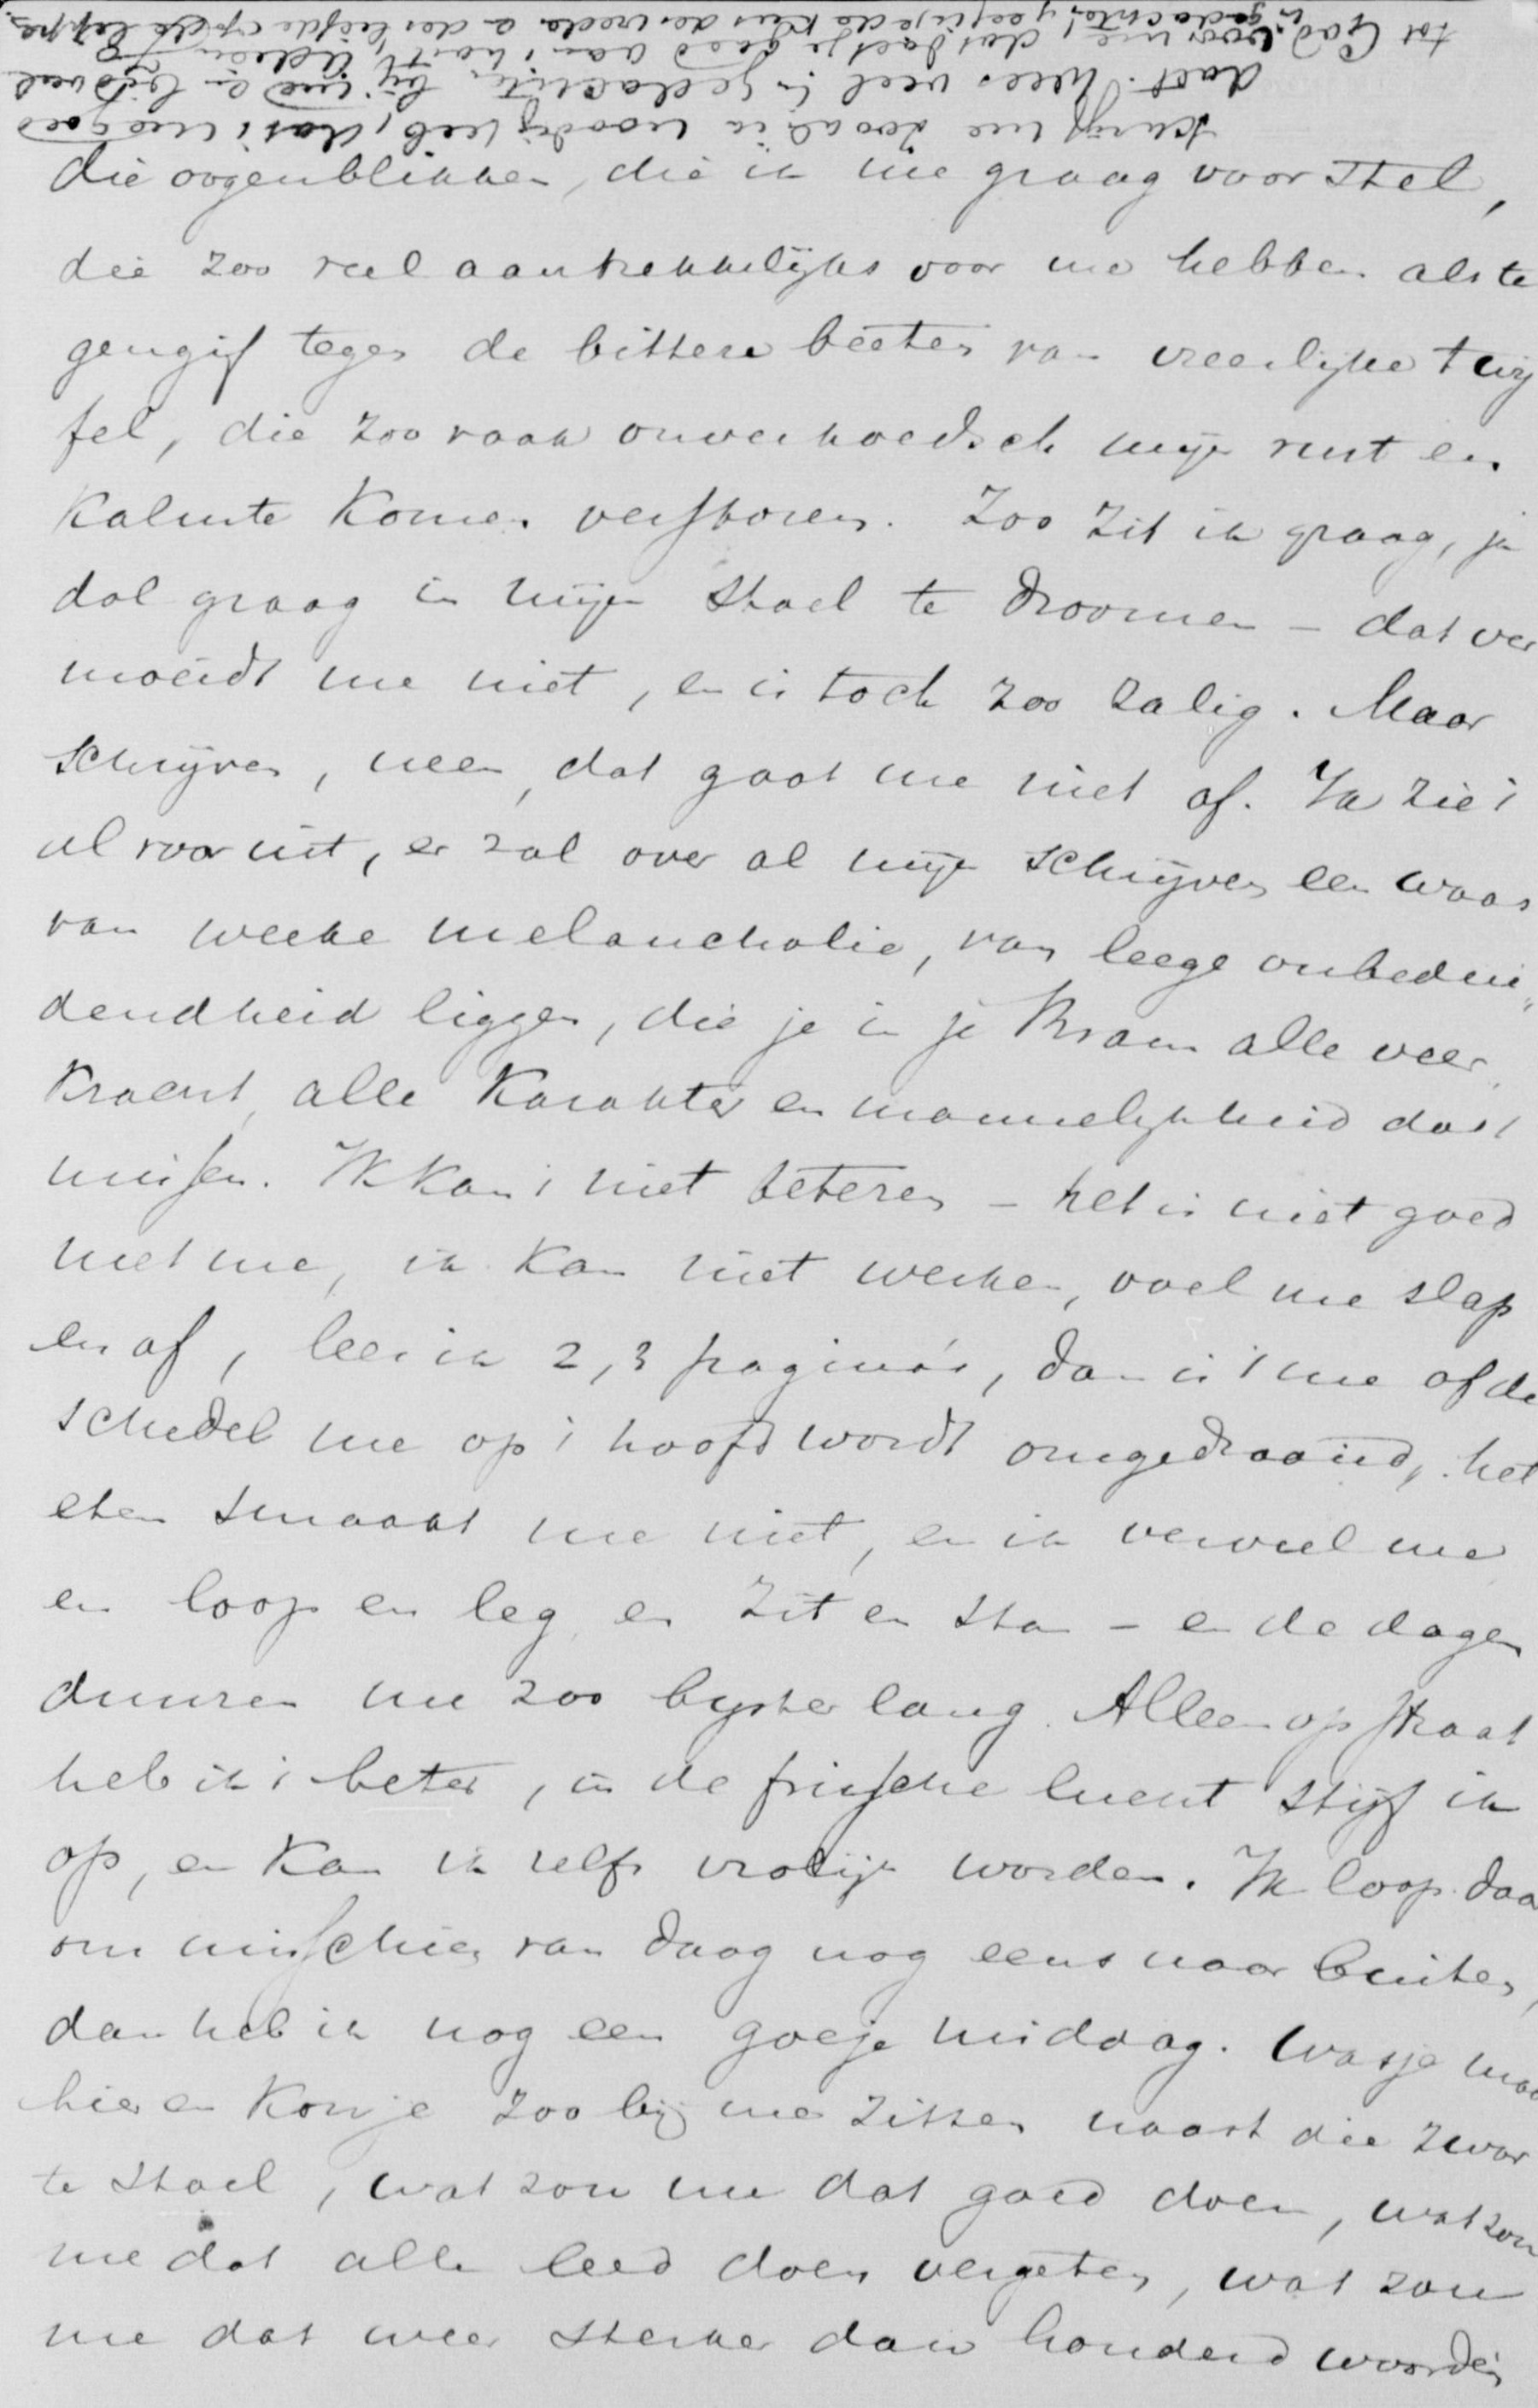 Schrijf me zooals ik noodig heb, dat 't me goed
doet. Wees veel in gedachten bij me en bid veel
tot God voor me,
die oogenblikken, die ik me graag voorstel,
die zoo veel aantrekkelijks voor me hebben als te
gengif tegen de bittere beeten van vreeslijke twij
fel, die zoo vaak onverhoedsch mijn rust en
kalmte komen verstoren. Zoo zit ik graag, ja
dol graag in mijn stoel te droomen – dat ver
moeidt me niet, en is toch zoo zalig. Maar
schrijven, neen, dat gaat me niet af. Ik zie 't
al vooruit, er zal over al mijn schrijven een waas
van weeke melancholie, van leege onbedui„
dendheid liggen, die je in je Bram alle veer„
kracht, alle karakter en mannelijkheid doet
missen. Ik kan 't niet beteren – het is niet goed
met me, ik kan niet werken, voel me slap
en af, lees ik 2, 3 pagina's, dan is 't me of de
schedel me op 't hoofd wordt omgedraaid, het
eten smaakt me niet, en ik verveel me
en loop en leg en zit en sta – en de dagen
duuren me zoo byster lang. Alleen op straat
heb ik 't beter, in de frissche lucht stijf ik
op, en kan ik zelfs vrolijk worden. Ik loop daar
om misschien van daag nog eens naar buiten,
dan heb ik nog een goeje middag. Was je maar
hier en kon je zoo bij me zitten naast die zwar
te stoel, wat zou me dat goed doen, wat zou
me dat alle leed doen vergeten, wat zou
me dat weer sterker dan honderd woorden